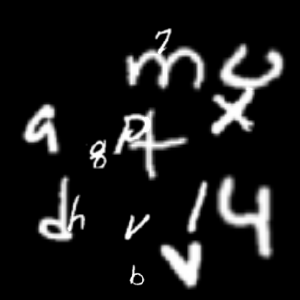 7
m u
a 8 p t x
d h v 1 4
b v